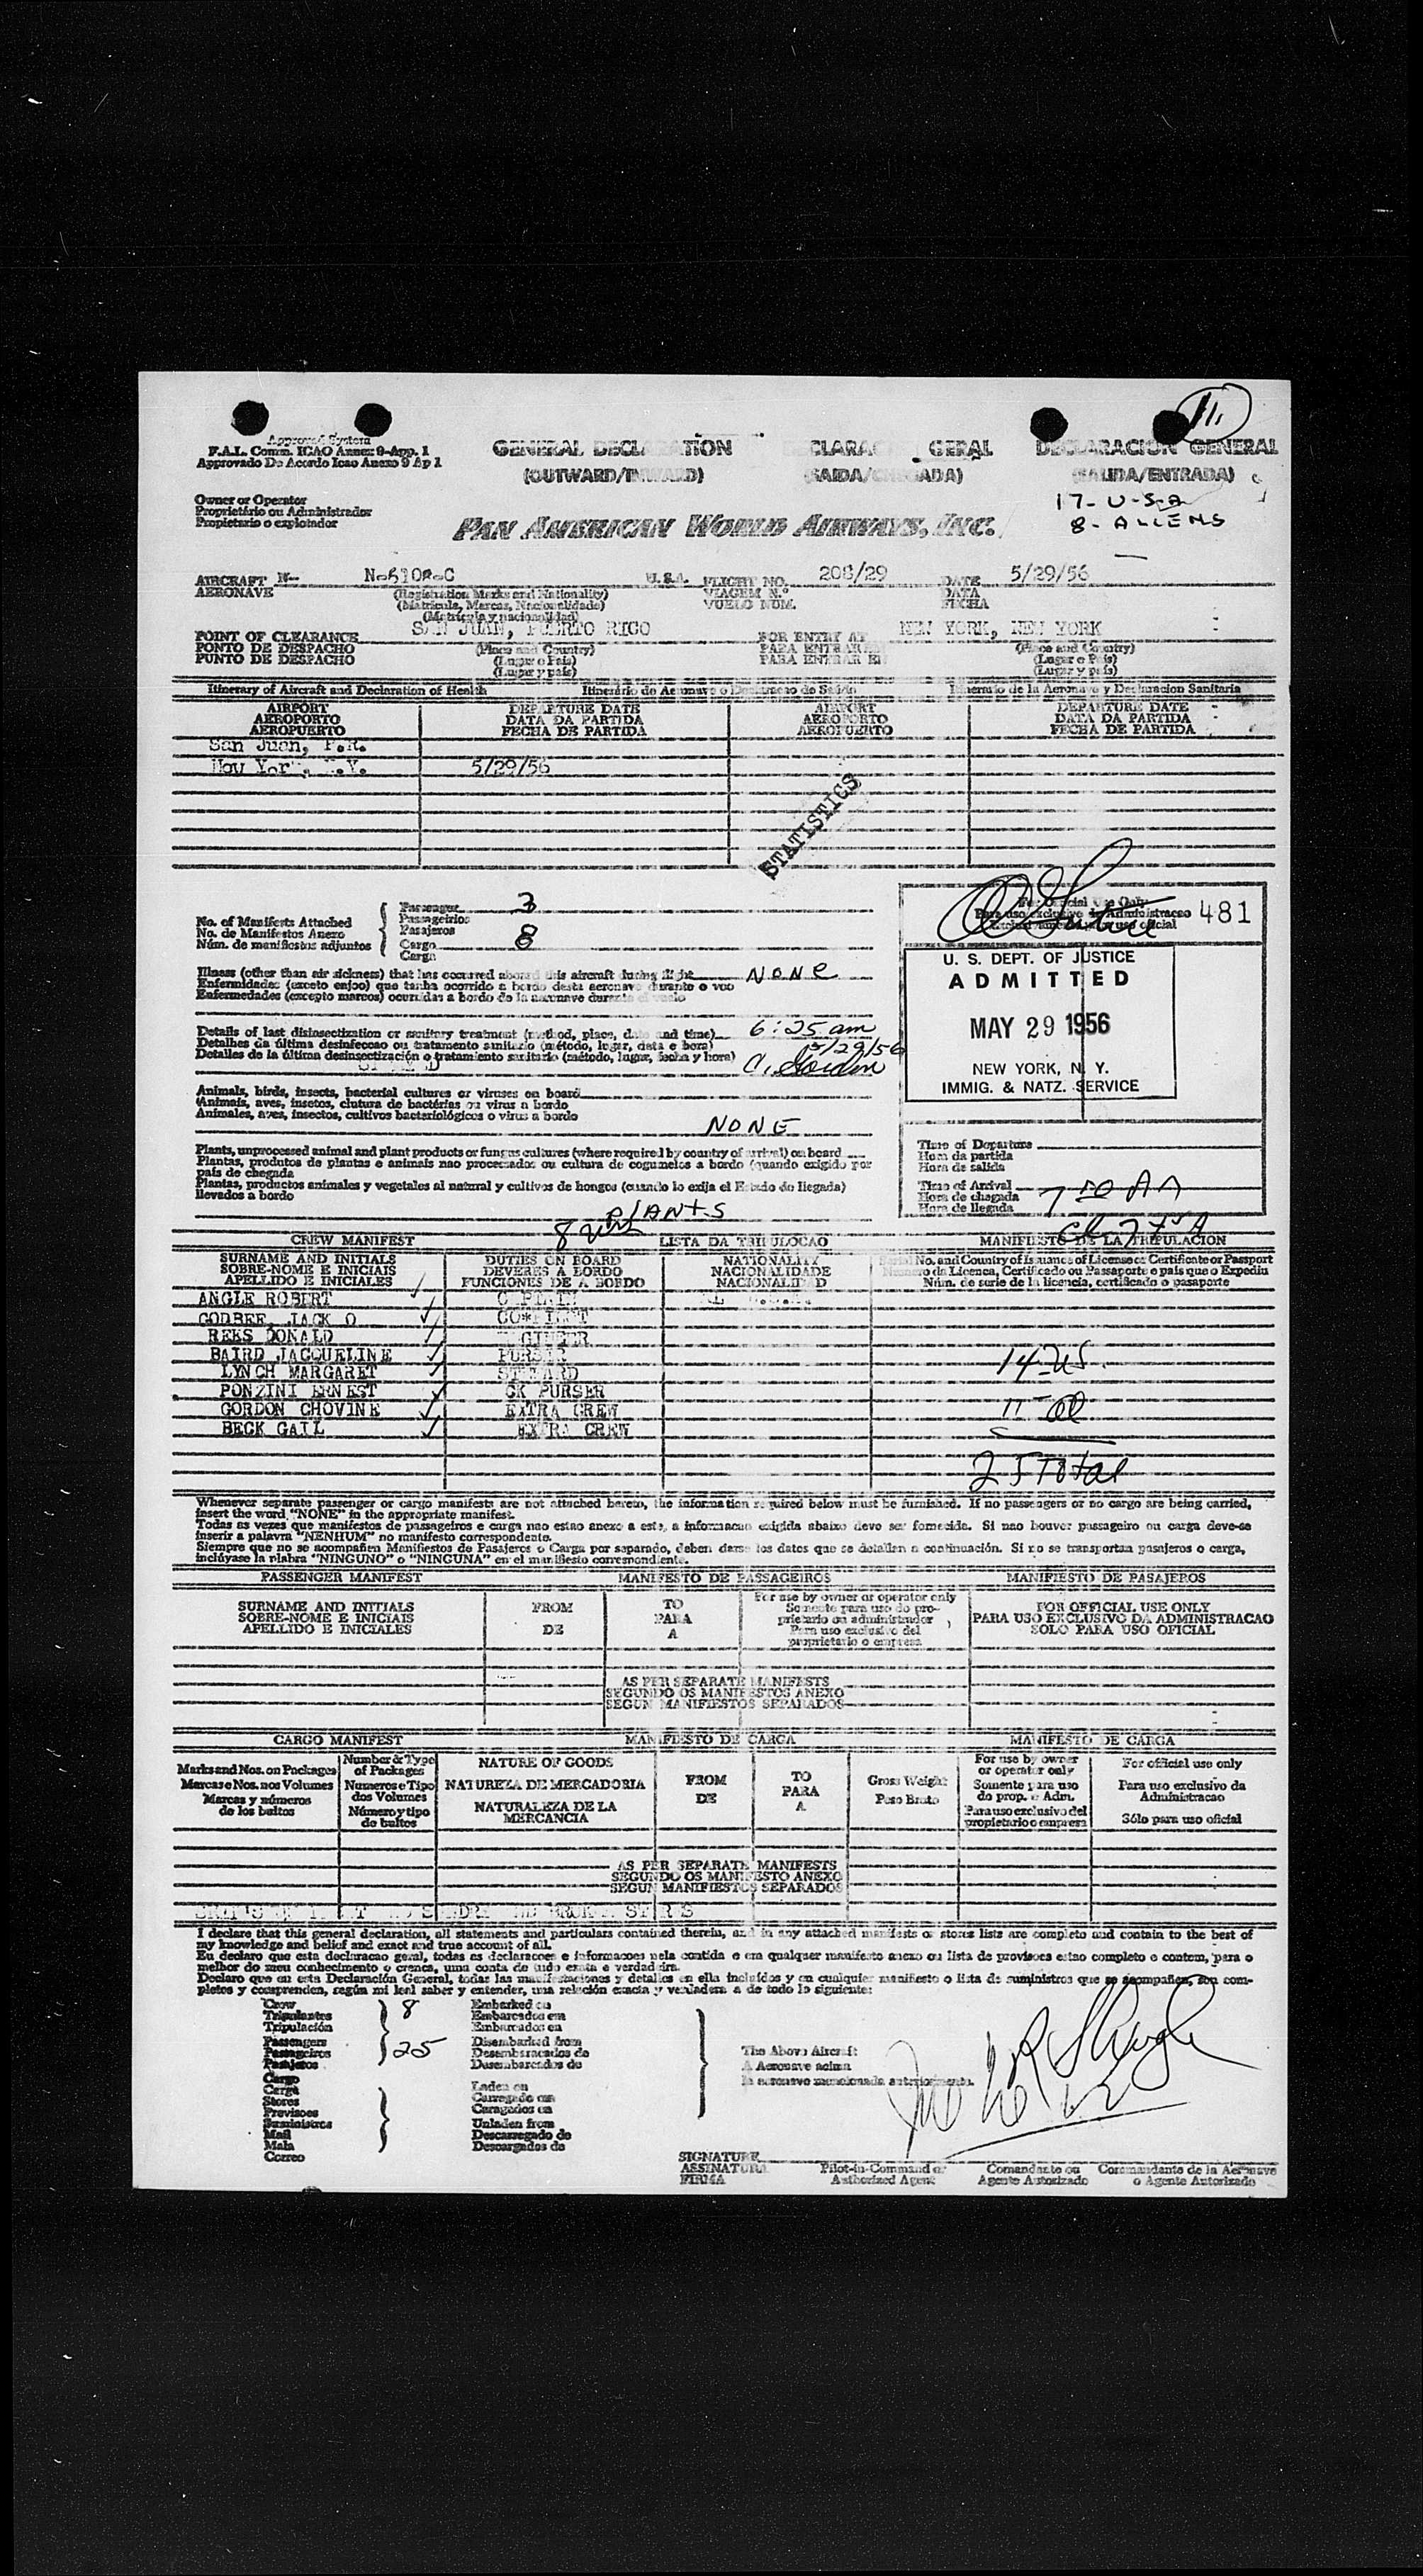 11.
Approved System
F.A.L. Comm. ICAO Annex 9-App. 1
Approvado De Acordo Icao Anexo 9 Ap 1
GENERAL DECLARATION GERAL DECLARACION GENERAL
(OUTWARD/INWARD) (SAIDA/CHEGADA) (SALIDA/ENTRADA)
Owner or Operator
Proprietário ou Administrador
Propietario o explotador
17- U-S-A
8- ALIENS
PAN AMERICAN WORLD AIRWAYS, INC.
AIRCRAFT N- U.S.A. FLIGHT NO. 208/29 DATE 5/29/56
AERONAVE (Registration Marks and Nationality) VIAGEM N.º DATA
(Matrícula, Marcas, Nacionalidade) VUELO NUM. FECHA
(Matrícula y nacionalidad)
POINT OF CLEARANCE SAN JUAN, PUERTO RICO FOR ENTRY AT NEW YORK, NEW YORK
PONTO DE DESPACHO (Place and Country) PARA ENTRAR EM (Place and Country)
PUNTO DE DESPACHO (Lugar e País) PARA ENTRAR EN (Lugar e País)
(Lugar y país) (Lugar y país)
Itinerary of Aircraft and Declaration of Health Itinerário de Aeronave o Declaracao de Saúde Itinerario de la Aeronave y Declaracion Sanitaria
AIRPORT DEPARTURE DATE AIRPORT DEPARTURE DATE
AEROPORTO DATA DA PARTIDA AEROPORTO DATA DA PARTIDA
AEROPUERTO FECHA DE PARTIDA AEROPUERTO FECHA DE PARTIDA
San Juan, P.R.
New York, N.Y. 5/29/56
STATISTICS
No. of Manifests Attached
No. de Manifestos Anexo
Núm. de manifiestos adjuntos
Passenger 3
Passageirios
Pasajeros
Cargo 8
Carga
For Official Use Only
Para uso exclusivo da Administracao
481
U. S. DEPT. OF JUSTICE
ADMITTED
MAY 29 1956
NEW YORK, N. Y.
IMMIG. & NATZ. SERVICE
Illness (other than air sickness) that has occurred aboard this aircraft during flight NONE
Enfermidades (exceto enjoo) que tenha ocorrido a bordo desta aeronave durante o voo
Enfermedades (excepto mareos) ocurridas a bordo de la aeronave durante el vuelo
Details of last disinsectization or sanitary treatment (method, place, date and time) 6:25 am
Detalhes da última desinfeccao ou tratamento sanitario (método, lugar, data e hora) 5/29/56
Detalles de la última desinsectización o tratamiento sanitario (método, lugar, fecha y hora)
Animals, birds, insects, bacterial cultures or viruses on board
Animais, aves, insetos, clutura de bactérias ou virus a bordo
Animales, aves, insectos, cultivos bacteriológicos o virus a bordo
NONE
Plants, unprocessed animal and plant products or fungus cultures (where required by country of arrival) on board
Plantas, produtos de plantas e animais nao procesados ou cultura de cogumelos a bordo (quando exigido por
pais de chegada
Plantas, productos animales y vegetales al natural y cultivos de hongos (cuando lo exija el Estado de llegada)
llevados a bordo
PLANTS
Time of Departure
Hora da partida
Hora de salida
Time of Arrival
Hora de chegada
Hora de llegada
CREW MANIFEST LISTA DA TRIPULOCAO MANIFIESTO DE LA TRIPULACION
SURNAME AND INITIALS DUTIES ON BOARD NATIONALITY Serial No. and Country of Issuance of License or Certificate or Passport
SOBRE-NOME E INICIAIS DEVERES A BORDO NACIONALIDADE Numero da Licenca, Certificado ou Passaporte e pais que o Expediu
APELLIDO E INICIALES FUNCIONES DE A BORDO NACIONALIDAD Núm. de surie de la licencia, certificado o pasaporte
ANGLE ROBERT CAPTAIN
GODBEE, JACK O CO*PILOT
REKS DONALD ENGINEER
BAIRD JACQUELINE PURSER
LYNCH MARGARET STEWARD
PONZINI ERNEST CK PURSER
GORDON CHOVINE EXTRA CREW
BECK GAIL EXTRA CREW
14-US
25 Total
Whenever separate passenger or cargo manifests are not attached hereto, the information required below must be furnished. If no passengers or no cargo are being carried,
insert the word "NONE" in the appropriate manifest.
Todas as vezes que manifestos de passageiros e carga nao estao anexo a este, a informacao exigida abaixo deve ser fornecida. Si nao houver passageiro ou carga deve-se
inserir a palavra "NENHUM" no manifesto correspondento.
Siempre que no se acompañen Manifiestos de Pasajeros o Carga por separado, deben darse los datos que se detallen a continuación. Si no se transportan pasajeros o carga,
inclúyase la plabra "NINGUNO" o "NINGUNA" en el manifiesto correspondiente.
PASSENGER MANIFEST MANIFESTO DE PASSAGEIROS MANIFIESTO DE PASAJEROS
SURNAME AND INITIALS FROM TO For use by owner or operator only FOR OFFICIAL USE ONLY
SOBRE-NOME E INICIAIS DE PARA Somente para uso do pro- PARA USO EXCLUSIVO DA ADMINISTRACAO
APELLIDO E INICIALES A prietario ou administrador SOLO PARA USO OFICIAL
Para uso exclusivo del
propietario o empresa
AS PER SEPARATE MANIFESTS
SEGUNDO OS MANIFESTOS ANEXO
SEGUN MANIFIESTOS SEPARADOS
CARGO MANIFEST MANIFIESTO DE CARGA MANIFESTO DE CARGA
Marks and Nos. on Packages Number & Type of Packages NATURE OF GOODS FROM TO Gross Weight For use by owner or operator only For official use only
Marcas e Nos. nos Volumes Numeros e Tipo dos Volumes NATUREZA DE MERCADORIA DE PARA Peso Bruto Somente para uso do prop. e Adm. Para uso exclusivo da Administracao
Marcas y números de los bultos Número y tipo de bultos NATURALEZA DE LA MERCANCIA A Para uso exclusivo del propietario o empresa Sólo para uso oficial
AS PER SEPARATE MANIFESTS
SEGUNDO OS MANIFESTO ANEXO
SEGUN MANIFIESTOS SEPARADOS
I declare that this general declaration, all statements and particulars contained therein, and in any attached manifests or stores lists are complete and contain to the best of
my knowledge and belief and exact and true account of all.
Eu declaro que esta declaracao geral, todas as declaracoes e informacoes nela contida e em qualquer manifesto anexo ou lista de provisoes estao completo e contem, para o
melhor do meu conhecimento o crenca, uma conta de tudo exata e verdadeira.
Declaro que en esta Declaración General, todas las manifestaciones y detalles en ella incluídos y en cualquier manifiesto o lista de suministros que se acompañen, son com-
pletos y comprenden, según mi leal saber y entender, una relación exacta y verdadera a de todo lo siguiente:
Crew 8 Embarked on
Tripulantes Embarcados em
Tripulación Embarcados en
Passengers 25 Disembarked from
Passageiros Desembaracados de
Pasajeros Desembarcados de
Cargo
Carga Laden on
Stores Carregado em
Previsoes Caragados en
Suministros Unladen from
Mail Descarregado de
Mala Descargados de
Correo
The Above Aircraft
A Aeronave acima
la aeronave mencionada anteriormente.
SIGNATURE
ASSINATURA Pilot-in-Command or Comandante ou Commandante de la Aeronave
FIRMA Authorized Agent Agente Autorizado o Agente Autorizado